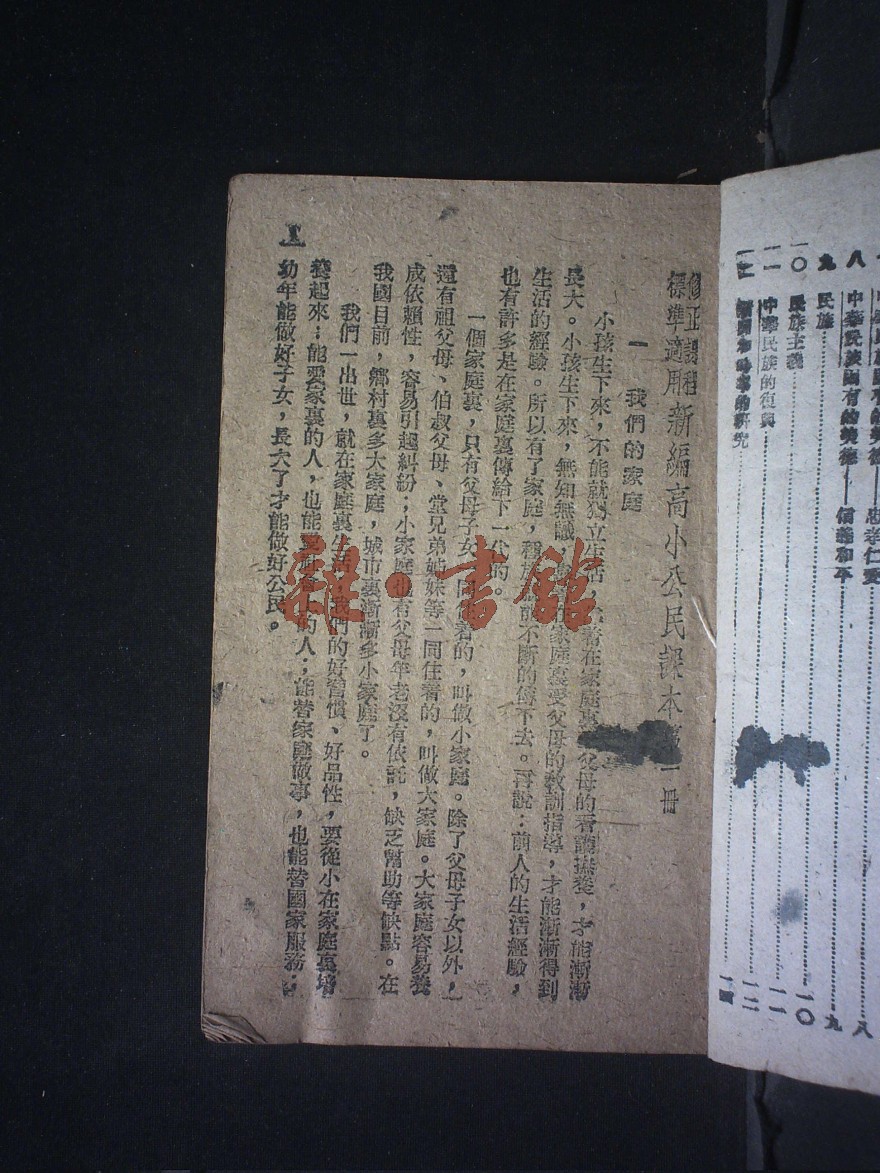 中華民族固有的美德——忠孝仁愛
八 中華民族固有的美德——信義和平 八
九 民族 九
一〇 民族主義 一〇
一一 中華民族的復興 一一
一二 一二
一四
修正課程
標準適用 新編高小公民課本第一冊
一 我們的家庭
小孩生下來，不能就獨立生活，在家庭裏父母的看護撫養，才能漸漸
長大。小孩生下來，無知無識，在家庭裏受父母的教訓指導，才能漸漸得到
生活的經驗。所以有了家庭，種族不斷的傳下去。再說：前人的生活經驗，
也有許多是在家庭裏傳給下一代的。
一個家庭裏，只有父母子女一同住着的，叫做小家庭。除了父母子女以外，
還有祖父母、伯叔父母、堂兄弟姊妹等一同住着的，叫做大家庭。大家庭容易養
成依賴性，容易引起糾紛；小家庭也有父母年老沒有依託，缺乏幫助等缺點。在
我國目前，鄉村裏多大家庭，城市裏漸漸多小家庭了。
我們一出世，就在家庭裏生活，我們的好習慣、好品性，要從小在家庭裏培
養起來；能愛家裏的人，也能愛的人；能替家庭做事，也能替國家服務；
幼年能做好子女，長大了才能做好公民。
雜·書館